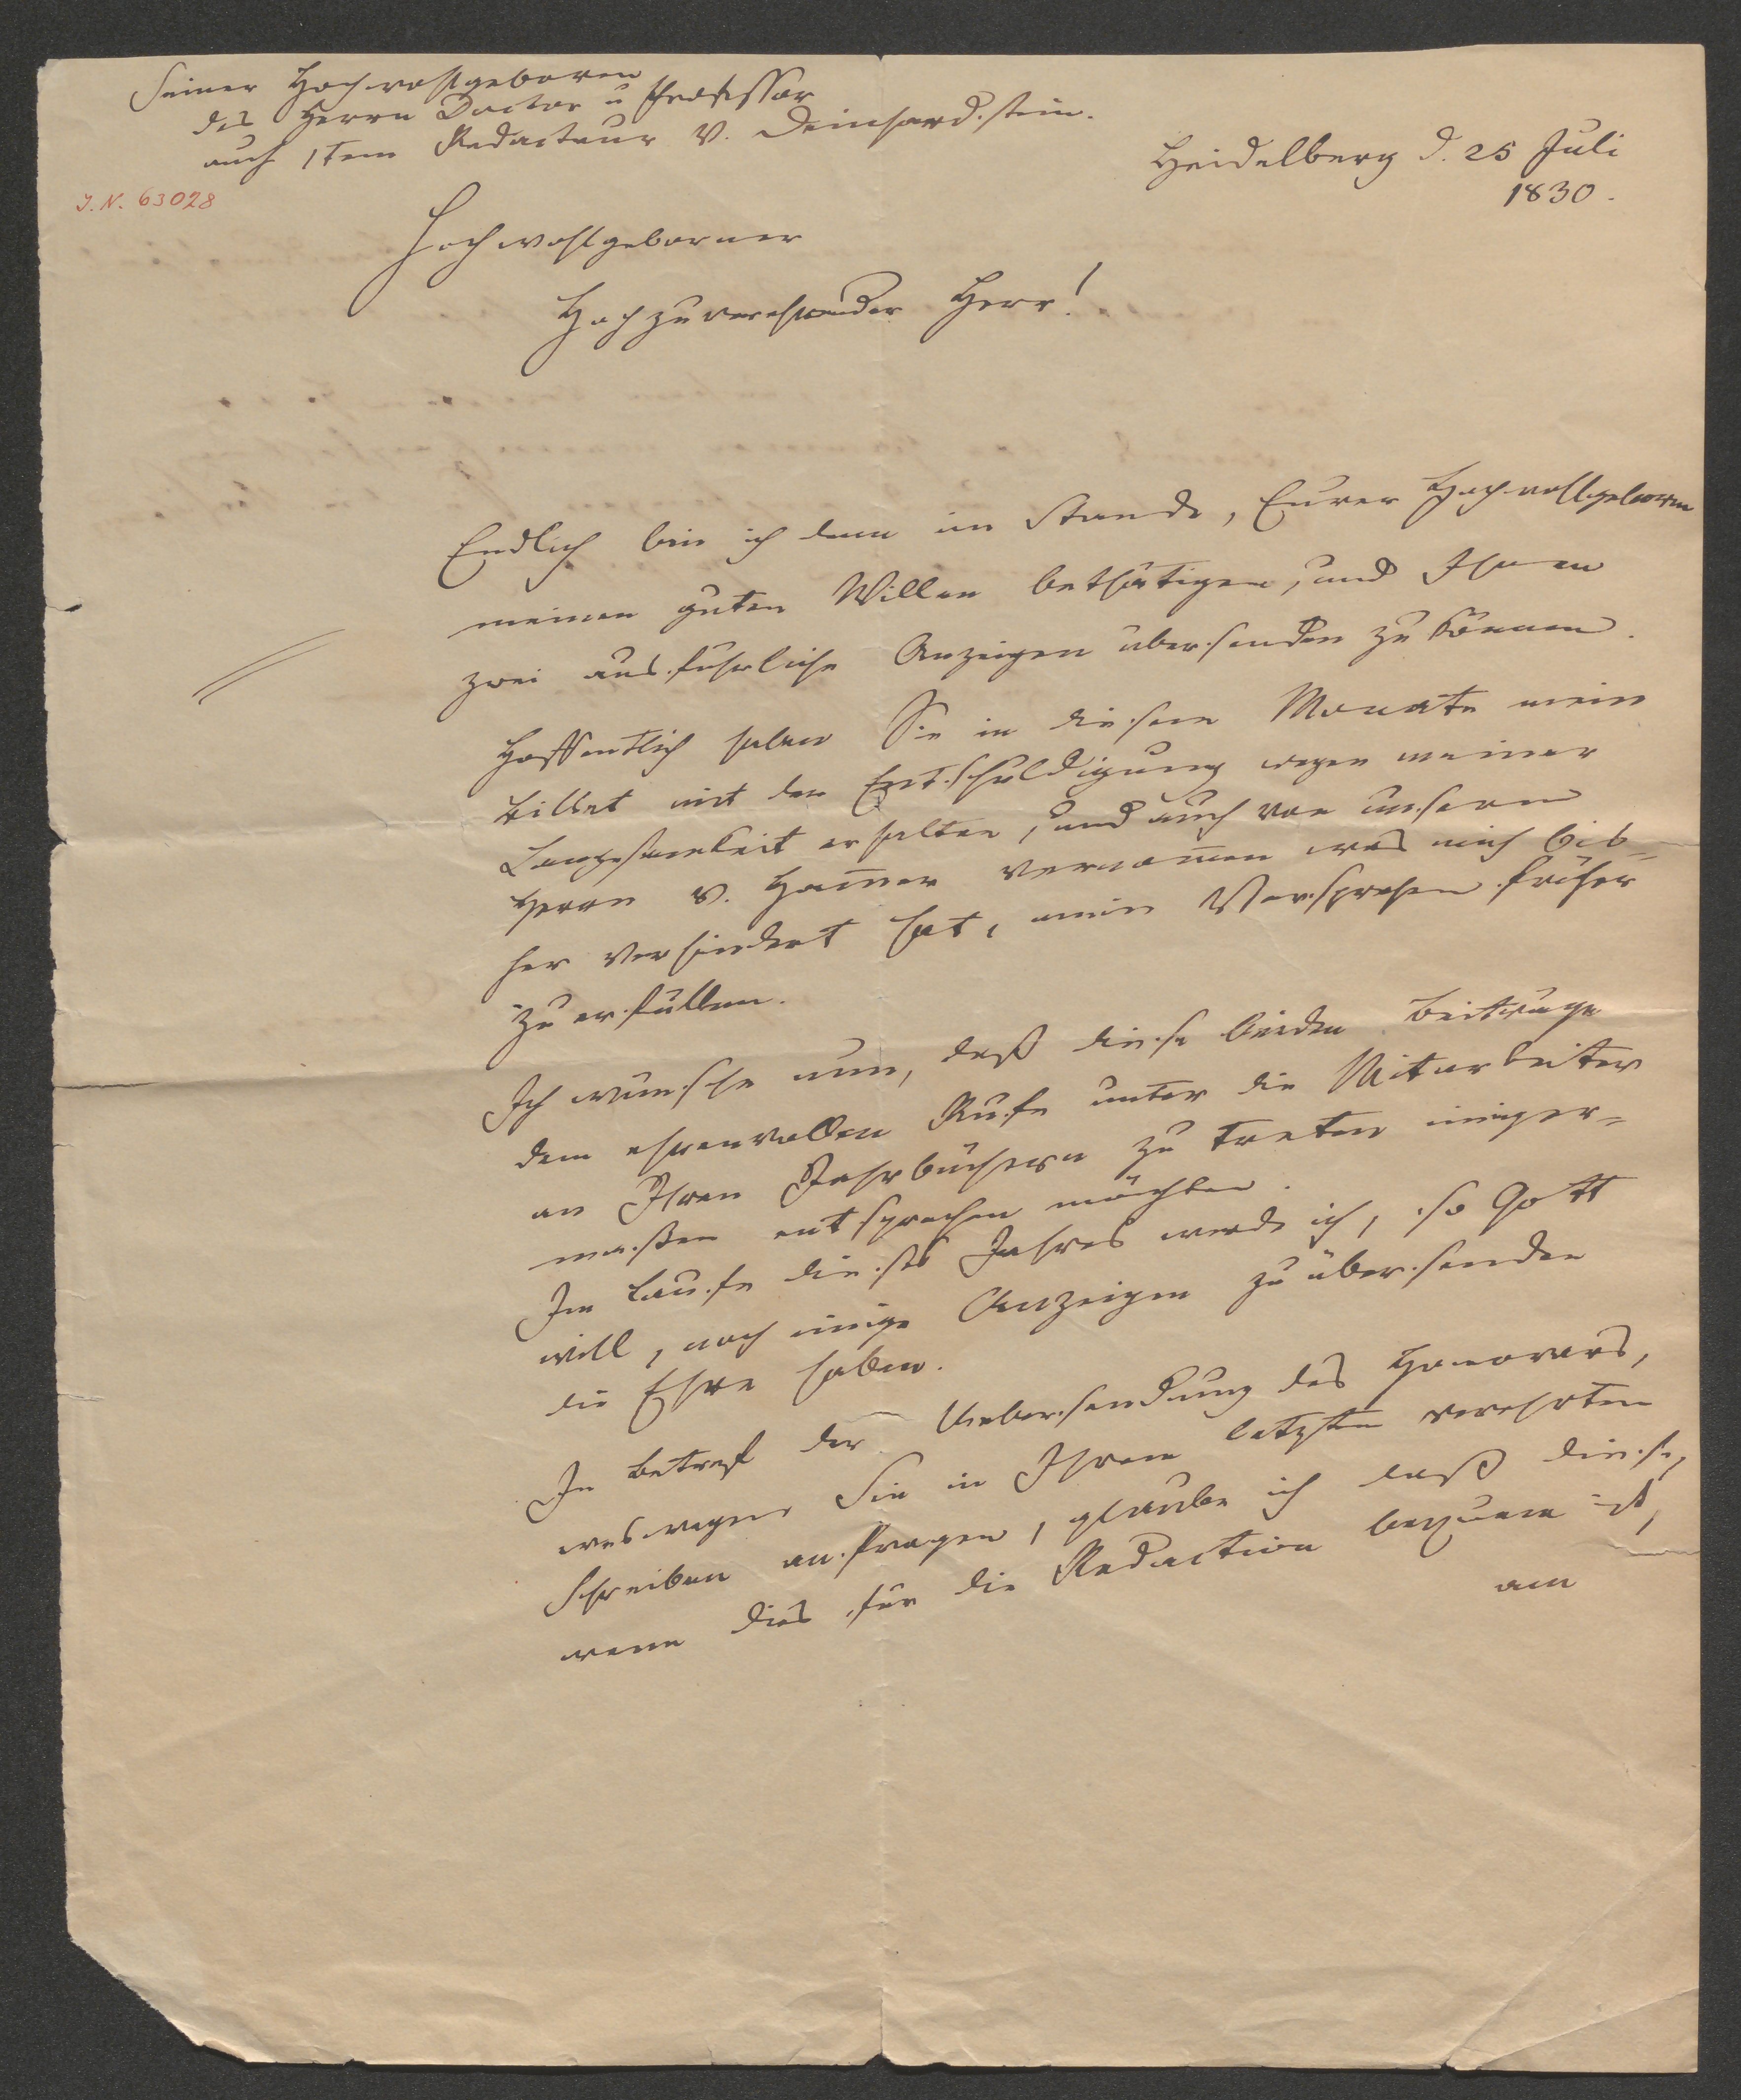 Seiner Hochwohlgeboren
des Herrn Doctor u Professor
auch 1tem Redacteur v. Deinhardstein.
Heidelberg d. 25 Juli
1830.
J. N. 63028
Hochwohlgeborner
Hochzuverehrender Herr!
Endlich bin ich denn im Stande, Eurer Hochwohlgeboren
meinen guten Willen bethätigen, und Ihnen
zwei ausführliche Anzeigen übersenden zu können.
Hoffentlich haben Sie in diesem Monate mein
Billet mit der Entschuldigung wegen meiner
Langsamkeit erhalten, und auch von unserem
Herrn v. Ham̄er vernom̄en was mich bis-
her verhindert hat, mein Versprechen früher
zu erfüllen.
Ich wünsche nun, daß diese beiden Beiträge
dem ehrenvollen Rufe unter die Mitarbeiter
an Ihren Jahrbüchern zu treten einiger=
maßen entsprechen möchten.
Im Laufe dieses Jahres werde ich, so Gott
will, noch einige Anzeigen zu übersenden
die Ehre haben.
In Betreff der Uebersendung des Honorars,
weswegen Sie in Ihrem letzten verehrten
Schreiben anfragen, glaube ich daß diese,
wenn dies für die Redaction bequem ist,
am